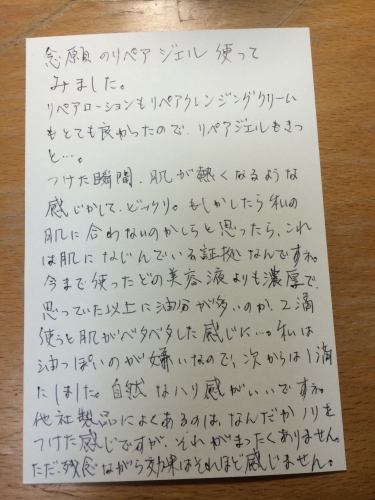 念願のリペアジェル使って
みました。
リペアローションもリペアクレンジングクリーム
もとても良かったので、リペアジェルもきっ
と…。
つけた瞬間、肌が熱くなるような
感じがして、ビックリ。もしかしたら私の
肌に合わないのかしらと思ったら、これ
は肌になじんでいる証拠なんですね。
今まで使ったどの美容液よりも濃厚で、
思っていた以上に油分が多いのか、2滴
使うと肌がベタベタした感じに…。私は
油っぽいのが嫌いなので、次からは1滴
にしました。自然なハリ感がいいですね。
他社製品によくあるのは、なんだかノリを
つけた感じですが、それがまったくありません。
ただ、残念ながら効果はそれほど感じません。